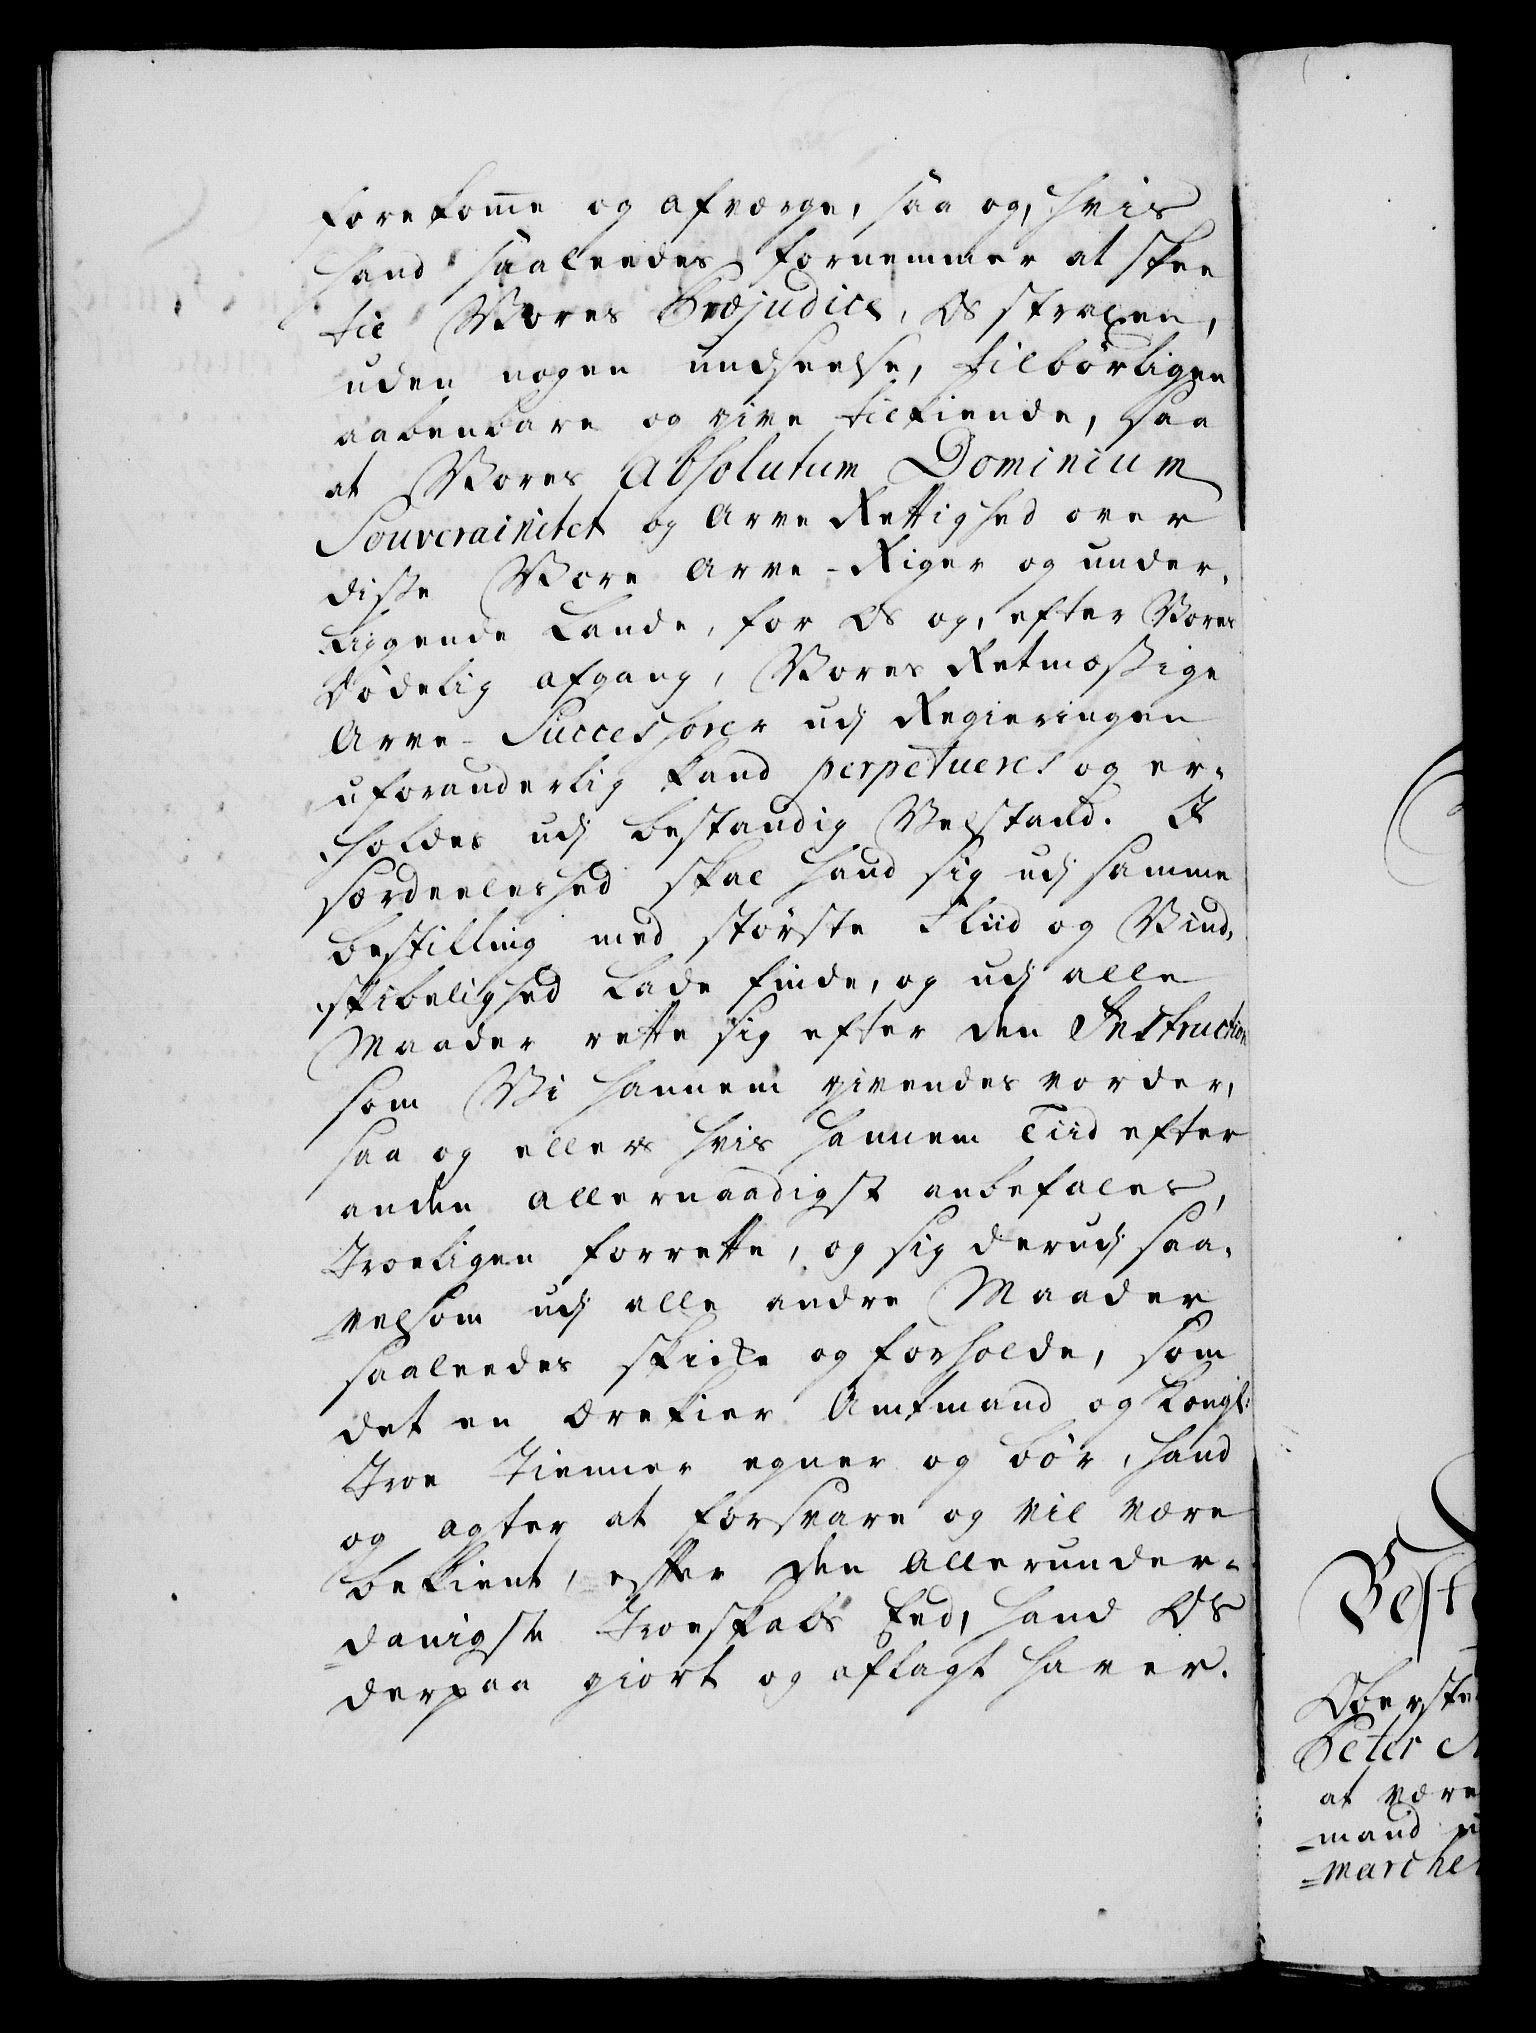 forekom̅e og afværge, saa og, hvis
hand saaleedes fornemmer at skee
til Vores Præjudice, Os straxen,
uden nogen undseelse, tilbørligen
aabenbare og give tilkiende, saa
at Vores Absolutum Dominium
Souverainitet og Arve Rettighed over
disse Vore Arve-Riger og under-
liggende Lande, for Os og, efter Vores
Dødelig afgang, Vores Retmæssige
Arve-Successorer udj Regieringen
uforanderlig kand perpetueres og er-
holdes udj bestandig Velstand. I
særdeeleshed skal hand sig udj samme
bestilling med største Fliid og Vind-
skibelighed lade finde, og udj alle
Maader rette sig efter den Instruction
som Vi hannem givendes vorder,
saa og ellers hvis hannem Tiid efter
anden allernaadigst anbefales,
Troeligen forrette, og sig derudj saa-
velsom udj alle andre Maader
saaleedes skicke og forholde, som
det en ærekier Amtmand og Kongl:
Troe Tienner egner og bør, hand
og agter at forsvare og vil være
bekient, efter den allerunder-
danigste Troeskabs Eed, hand Os
derpaa giort og aflagt haver.
Best
Oberste
Peter
at være
mand
marcher